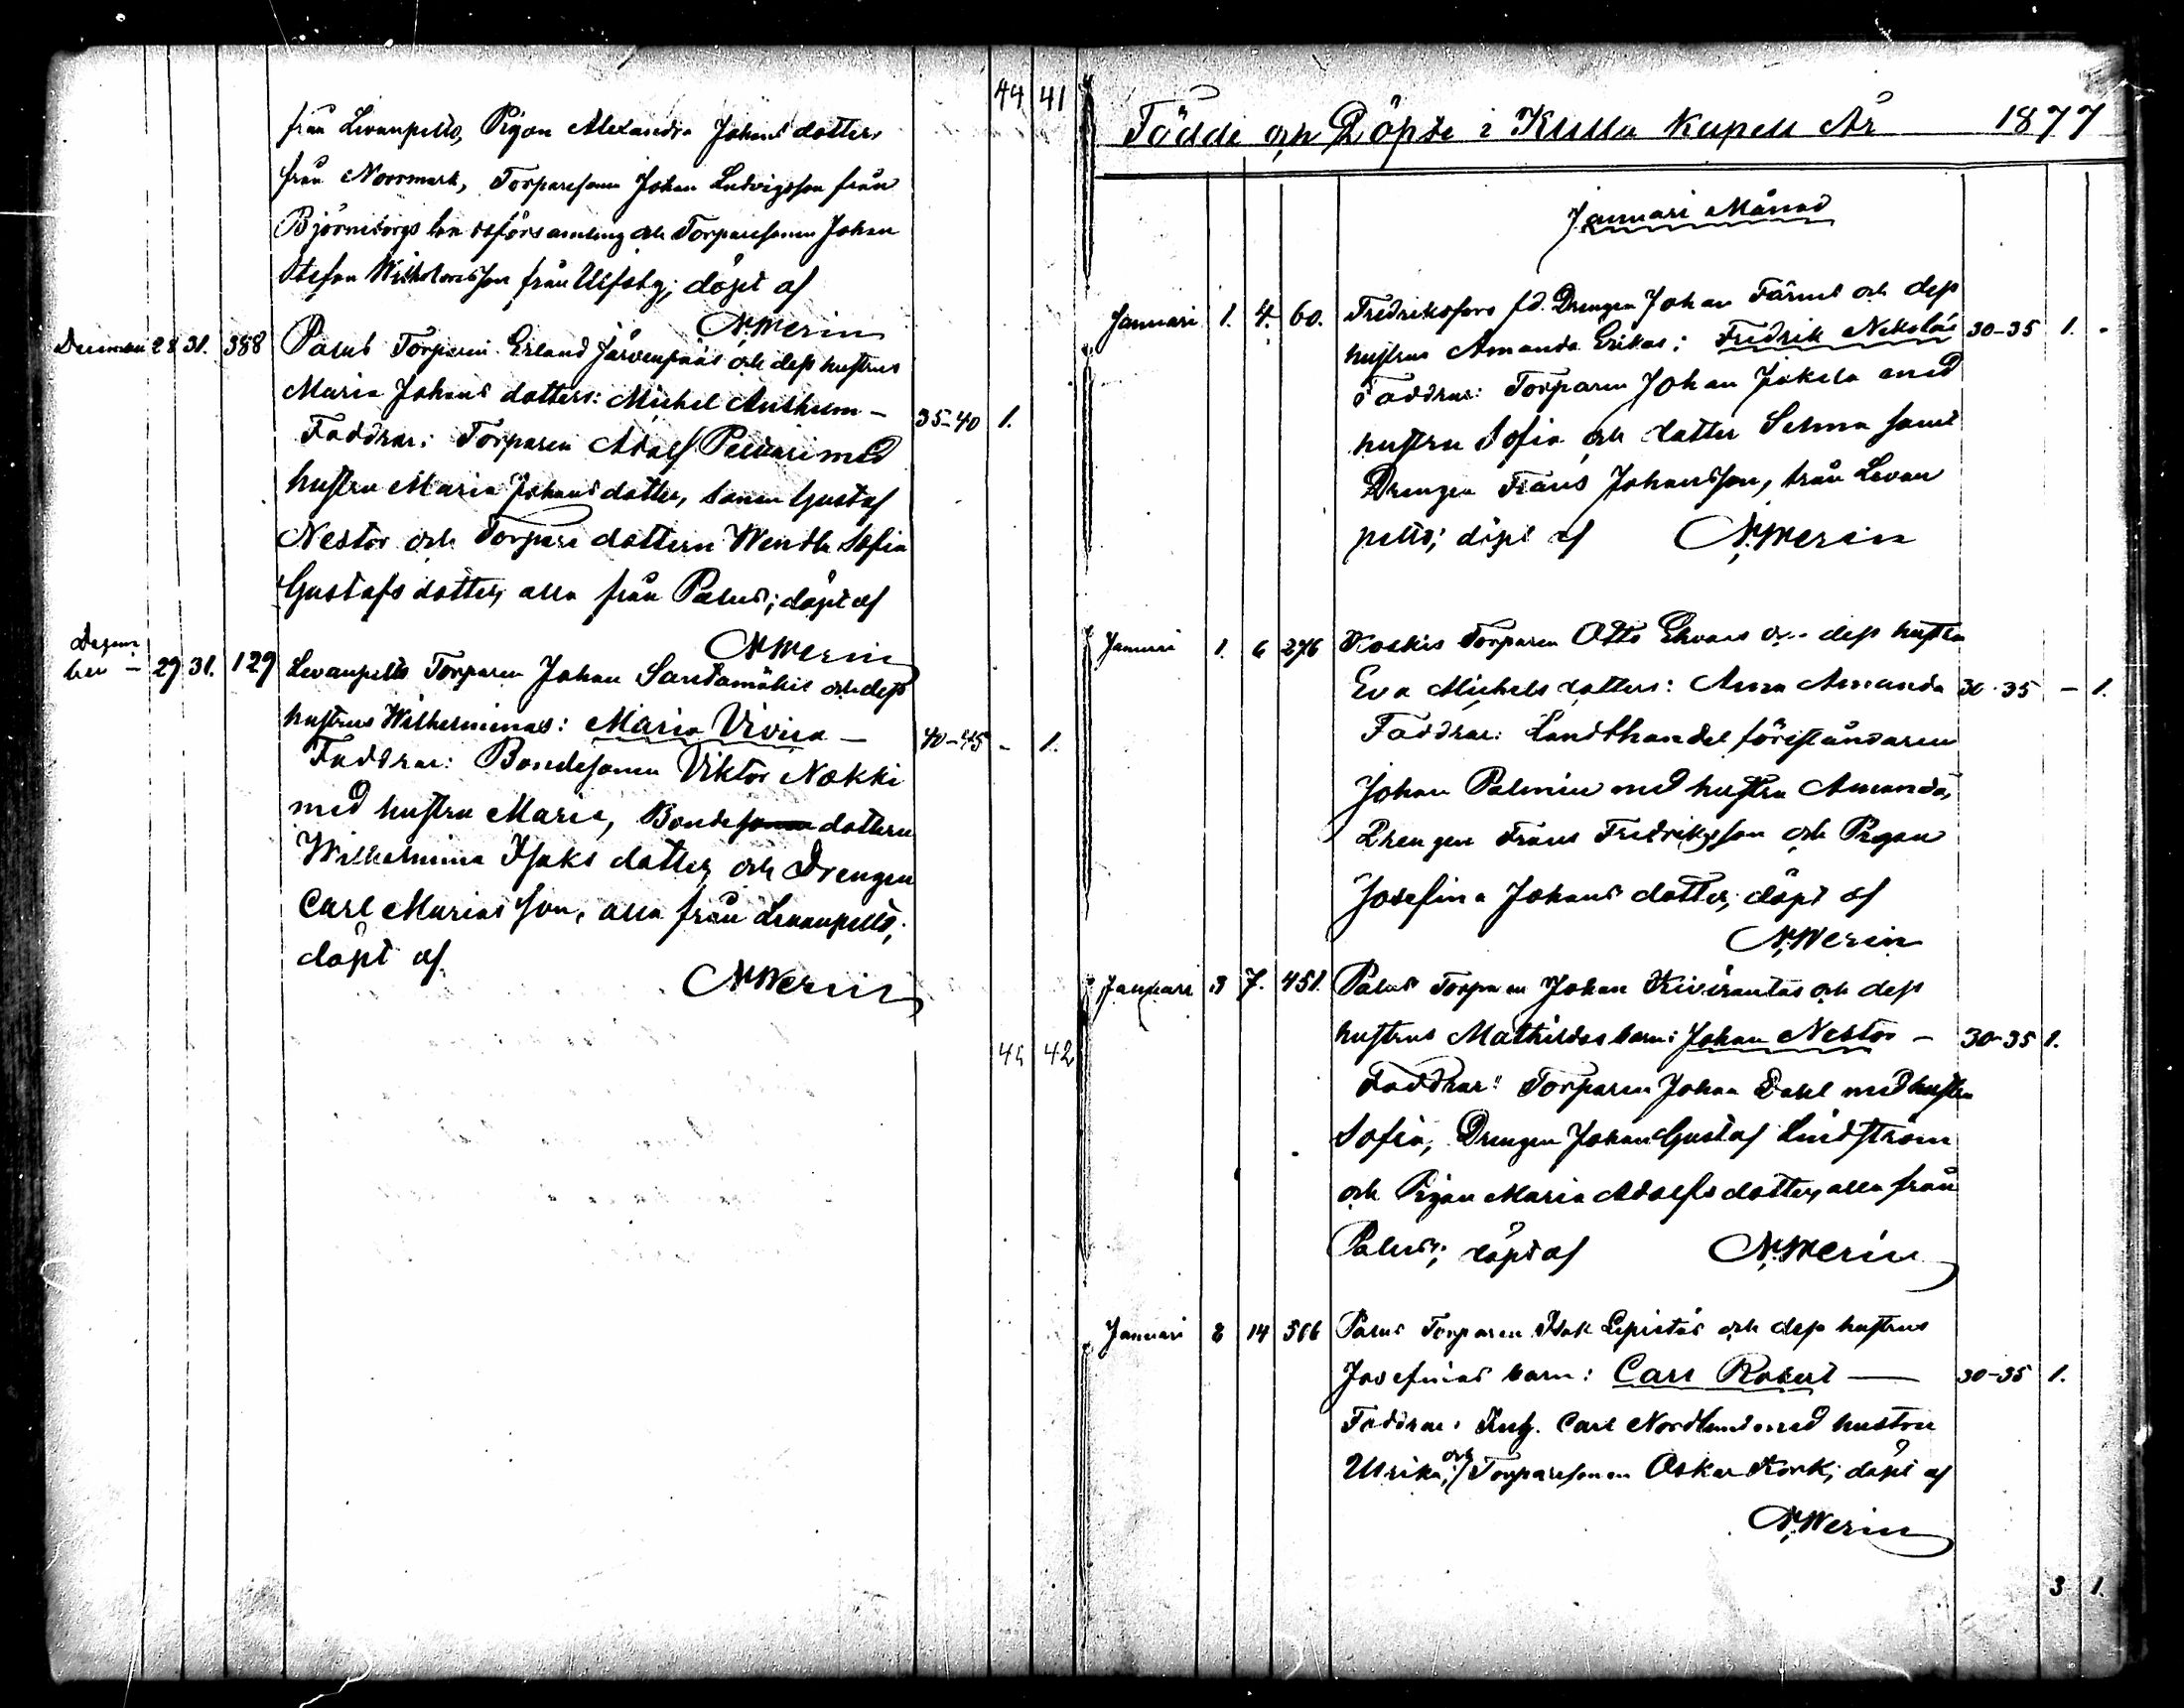 44 41
från Levanpelto, Pigan Alexandra Johans dotter
från Norrmark, Torparesonen Johan Ludvigsson från
Björneborgs landsförsamling och Torparesonen Johan
Stefan från Ulfsby; döpt af
N. Merin
December 28 31. 388 Palus Torparen Erland Järvenpääs och dess hustrus
Maria Johans dotters: Michel Anshelm – 35-40 1.
Faddrar: Torparen Adolf med
hustru Maria Johansdotter, sonen Gustaf
Nestor och Torpare dottern Wendla Sofia
Gustafs dotter, alla från Palus; döpt af
N. Merin
Decem
ber – 29 31. 129 Levanpelto Torparen Johan Santamäkis och dess
hustrus Wilhelminas: Maria Vivica – 40-45 - 1.
Faddrar: Bondesonen Viktor Nokki
med hustru Maria, Bondesonen dottern
Wilhelmina Isaks dotter, och Drengen
Carl Mariasson, alla från Levanpelto;
döpt af
N. Merin
42
Födde och Döpte i Kulla Kapell År 1877
Januari Månad
Januari 1. 4. 60. Fredriksfors fd. Drengen Johan Färms och dess
hustrus Amanda Erikas: Fredrik Nikolai 30-35 1. -
Faddrar: Torparen Johan Jokela med
hustru Sofia och dotter Selma samt
Drengen Frans Johansson, från Levan
pelto; döpt af N. Merin
Januari 1. 6 276 Koskis Torparen Otto och dess hustru
Eva Michels dotters: Anna Amanda 30-35 – 1.
Faddrar: Landthandel föreståndaren
Johan Palmin med hustru Amanda,
Drengen Frans Fredriksson och Pigan
Josefina Johans dotter; döpt af
N. Merin
Januari 3 7. 451. Palus Torparen Johan Kivirantas och dess
hustrus Mathildas barn: Johan Nestor – 30-35 1.
Faddrar: Torparen Johan Dahl med hustru
Sofia, Drengen Johan Gustaf Lindström
och Pigan Maria Adolfs dotter, alla från
Palus; döpt af N. Merin
Januari 8 14 566 Palus Torparen Isak Lepistös och dess hustrus
Josefinas barn: Carl Robert — 30-35 1.
Faddrar: Carl Nordlund med hustru
Ulrika, och Torparesonen Oskar Kork; döpt af
N. Merin
3 1.